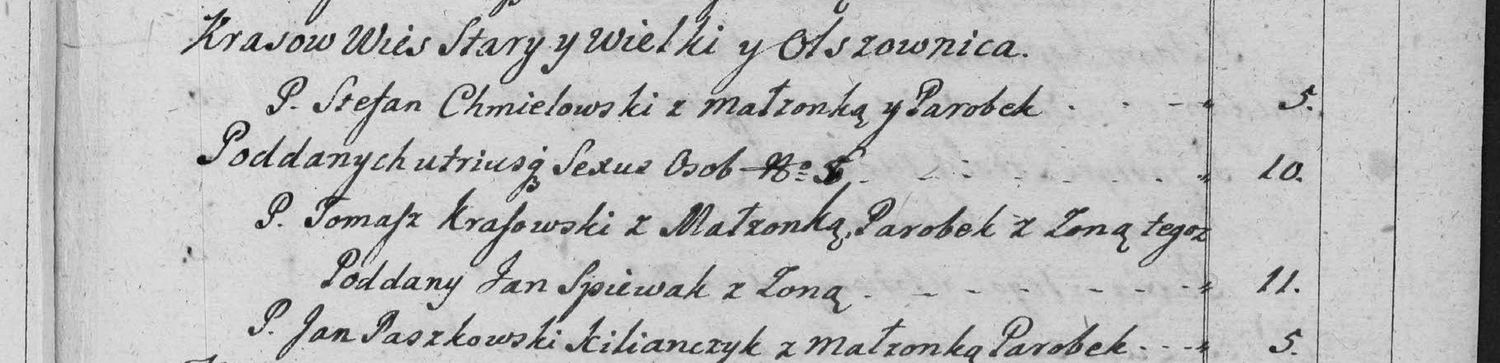 Krasow Wies Stary y Wielki y Olszownica.
P. Stefan Chmielowski z małzonką y Parobek . . - - „ 5.
Poddanych utriusq Sexus Osob - - - - „ 10.
P. Tomasz Krasowski z Małzonką, Parobek z Zoną tegoz
Poddany Jan Spiewak z Zoną . - - - - - - - „ 11.
P. Jan Paszkowski Kilianczyk z małzonką Parobek . - - „ 5.